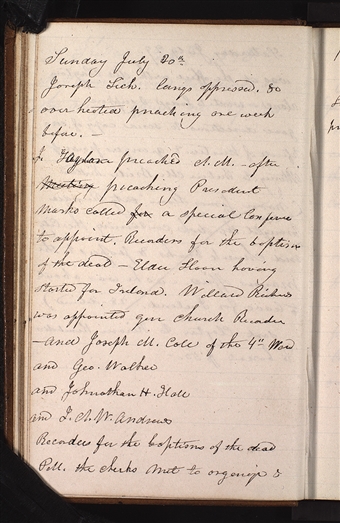 Sunday July 30th
Joseph Sick. lungs oppressed. &
over heated preaching one week
before. —
J. Taylor preached A. M. — after
Meeting preaching President
Marks called for a special Confere
to appoint. Recorders for the baptism
of the dead — Elder Sloan having
started for Ireland. Willard Richards
was appointed gen Church Recorder
— and Joseph M. Cole of the 4th Ward
and Geo. Walker
and Johnathan H. Hale
and J. A. W. Andrews
Recorders for the baptisms of the dead
P.M. the clerks met to organize &